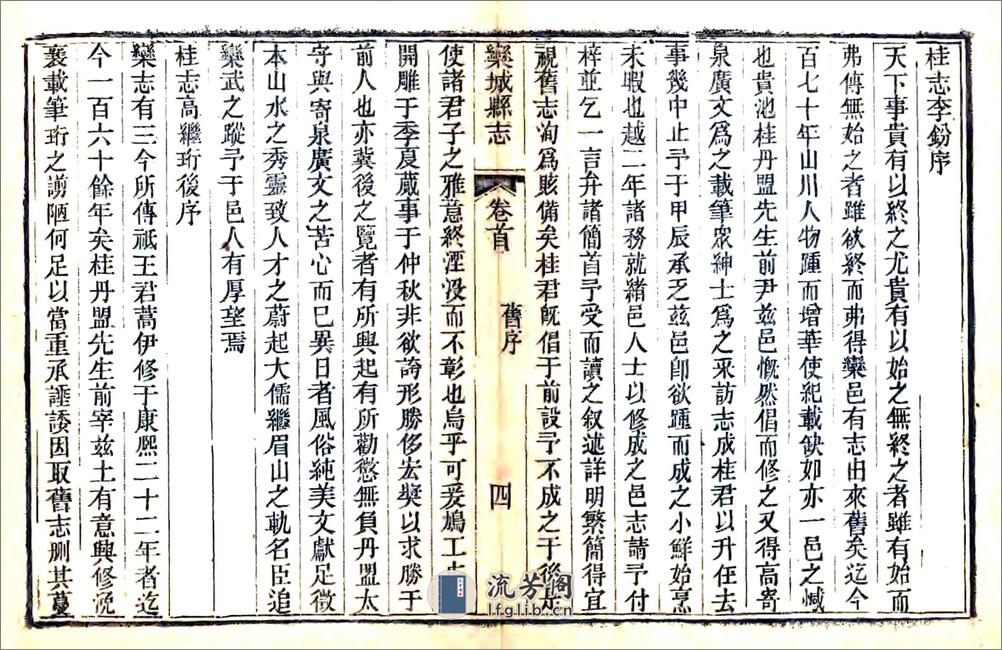 桂志李鈖序
天下事貴有以終之尤貴有以始之無終之者雖有始而
弗傳無始之者雖欲終而弗得欒邑有志由來舊矣迄今
百七十年山川人物踵而增華使紀載缺如亦一邑之憾
也貴池桂丹盟先生前尹玆邑慨然倡而修之又得高寄
泉廣文爲之載筆衆紳士爲之采訪志成桂君以升任去
事幾中止予于甲辰承乏玆邑卽欲踵而成之小鮮始烹
未暇也越二年諸務就緒邑人士以修成之邑志請予付
梓並乞一言弁諸簡首予受而讀之叙述詳明繁簡得宜
視舊志洵爲賅備矣桂君旣倡于前設予不成之于後
欒城縣志
卷首
舊序
四
使諸君子之雅意終湮沒而不彰也烏乎可爰鳩工
開雕于季夏蕆事于仲秋非欲誇形勝侈宏奬以求勝于
前人也亦冀後之覽者有所興起有所勸懲無負丹盟太
守與寄泉廣文之苦心而已異日者風俗純美文獻足徵
本山水之秀靈致人才之蔚起大儒繼眉山之軌名臣追
欒武之蹤予于邑人有厚望焉
桂志高繼珩後序
欒志有三今所傳祗王君蒿伊修于康熙二十二年者迄
今一百六十餘年矣桂丹盟先生前宰玆土有意興修謬
襄載筆珩之謭陋何足以當重承諈諉因取舊志刪其蔓
流芳阁
lfglib.cn